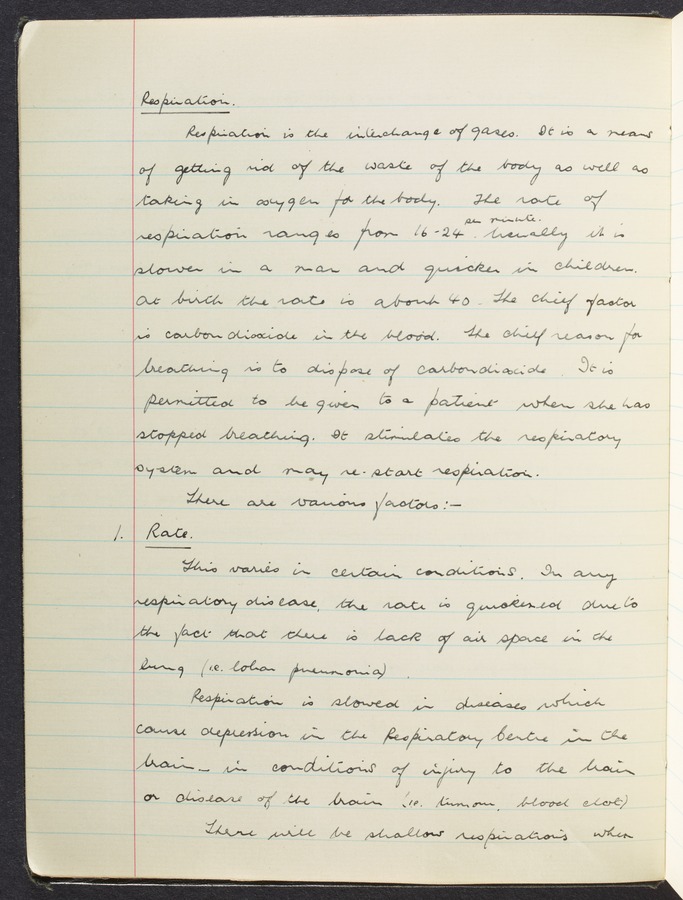 Respiration.
Respiration is the interchange of gases. It is a means
of getting rid of the waste of the body as well as
taking in oxygen for the body. The rate of
respiration ranges from 16-24 per minute. Usually it is
slower in a man and quicker in children.
At birth the rate is about 40. The chief factor
is carbon dioxide in the blood. The chief reason for
breathing is to dispose of carbondioxide. It is
permitted to be given to a patient when she has
stopped breathing. It stimulates the respiratory
system and may re-start respiration.
There are various factors:-
1. Rate.
This varies in certain conditions. In any
respiratory disease, the rate is quickened due to
the fact that there is lack of air space in the
lung (i.e. lobar pneumonia).
Respiration is slowed in diseases which
cause depression in the Respiratory Centre in the
brain - in conditions of injury to the brain
or disease of the brain (i.e. tumour, blood clot)
There will be shallow respirations when